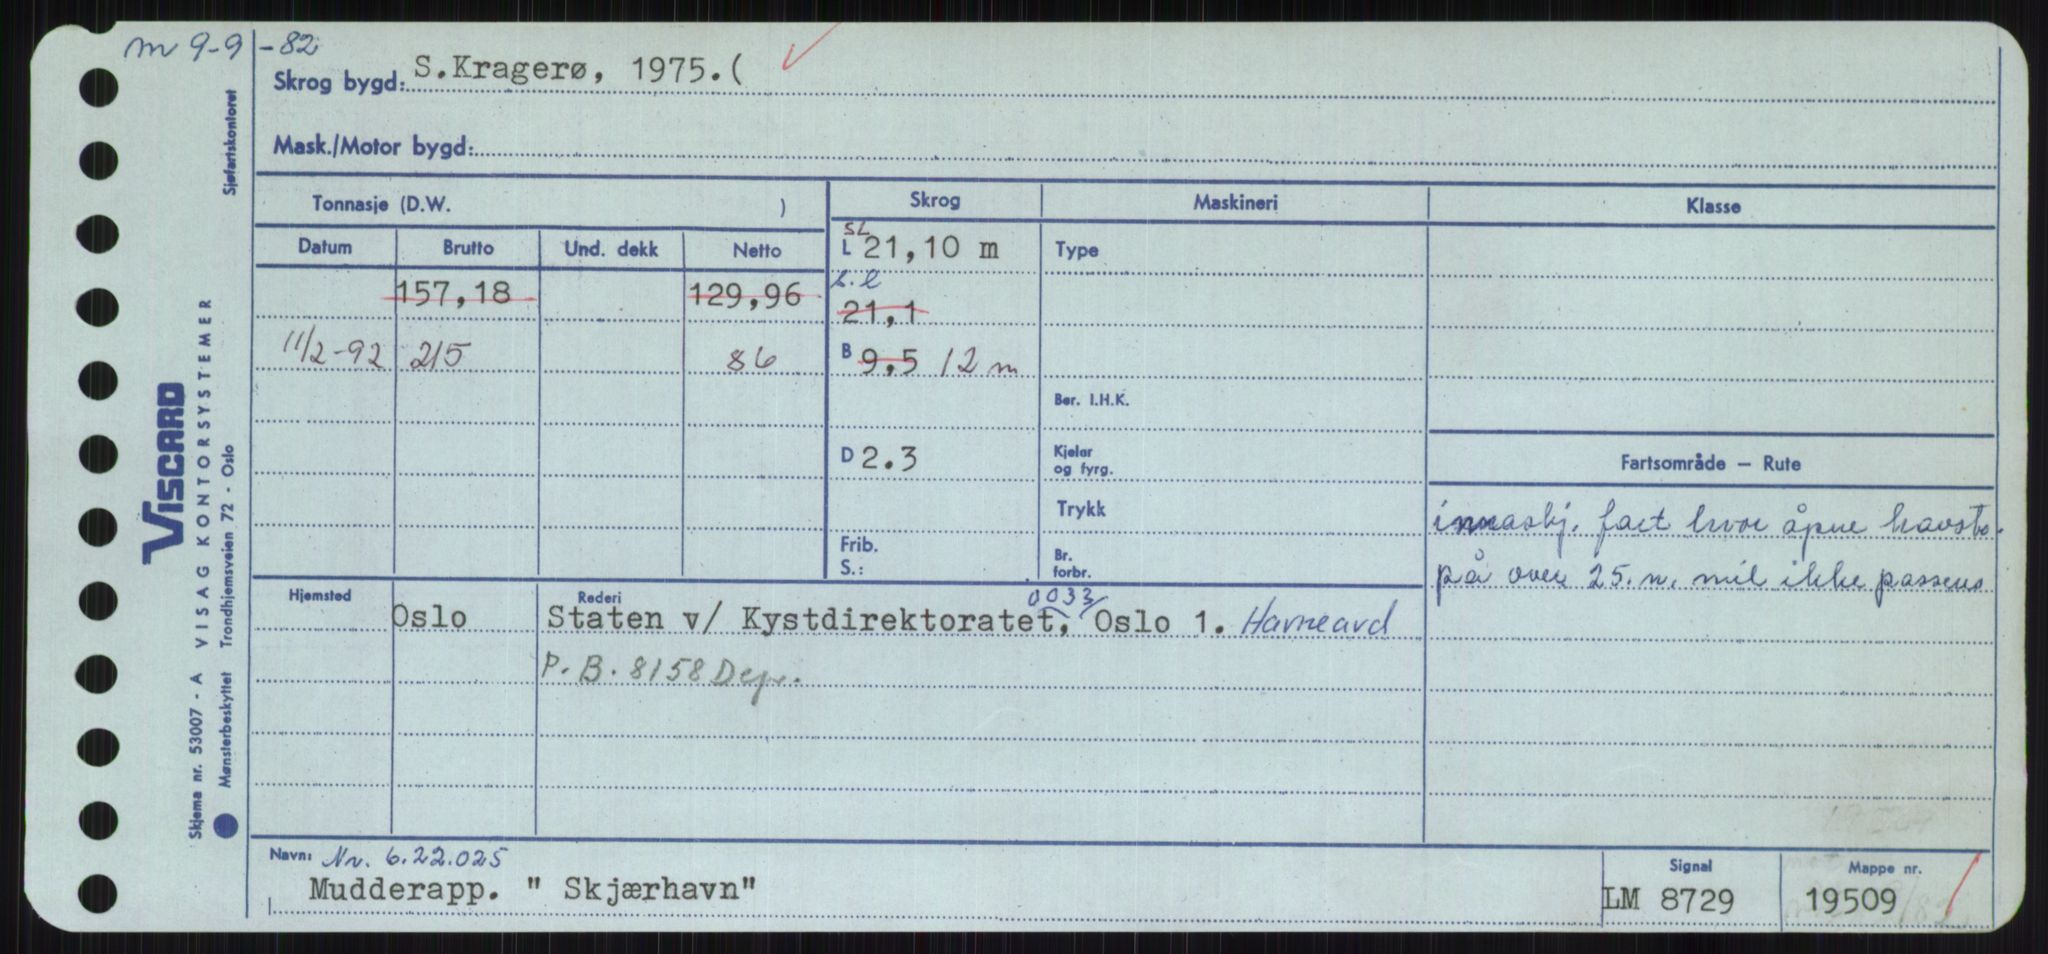 m 9-9-82
Skrog bygd: S.Kragerø, 1975.(
Mask./Motor bygd:
Tonnasje (D.W. )
Skrog
Maskineri
Klasse
Datum Brutto Und. dekk Netto
SL
L 21,10 m
Type
157,18 129,96
L.l
21,1
11/2-92 215 86
B 9,5 12 m
Ber. I.H.K.
D 2.3
Kjeler
og fyrg.
Fartsområde – Rute
Trykk
innaskj. fart hvor åpne havstr.
Frib.
S.:
Br.
forbr.
på over 25.n. mil ikke passeres
Hjemsted
Rederi
0033
Oslo Staten v/ Kystdirektoratet, Oslo 1. Havneavd
P.B. 8158 Dep.
Navn: Nr. 6.22.025
Signal
Mappe nr.
Mudderapp. " Skjærhavn"
LM 8729
19509
Sjøfartskontoret
VISCARD
VISAG KONTORSYSTEMER
Trondhjemsveien 72 - Oslo
Skjema nr. 53007 - A
Mønsterbeskyttet